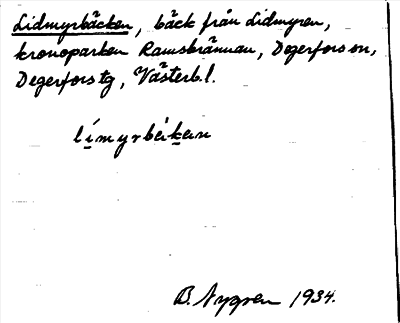 Lidmyrbäcken, bäck från Lidmyren,
kronoparken Ramsbrännan, Degerfors sn,
Degerfors tg, Västerb. l.
límyrbäken
B. Nygren 1934.